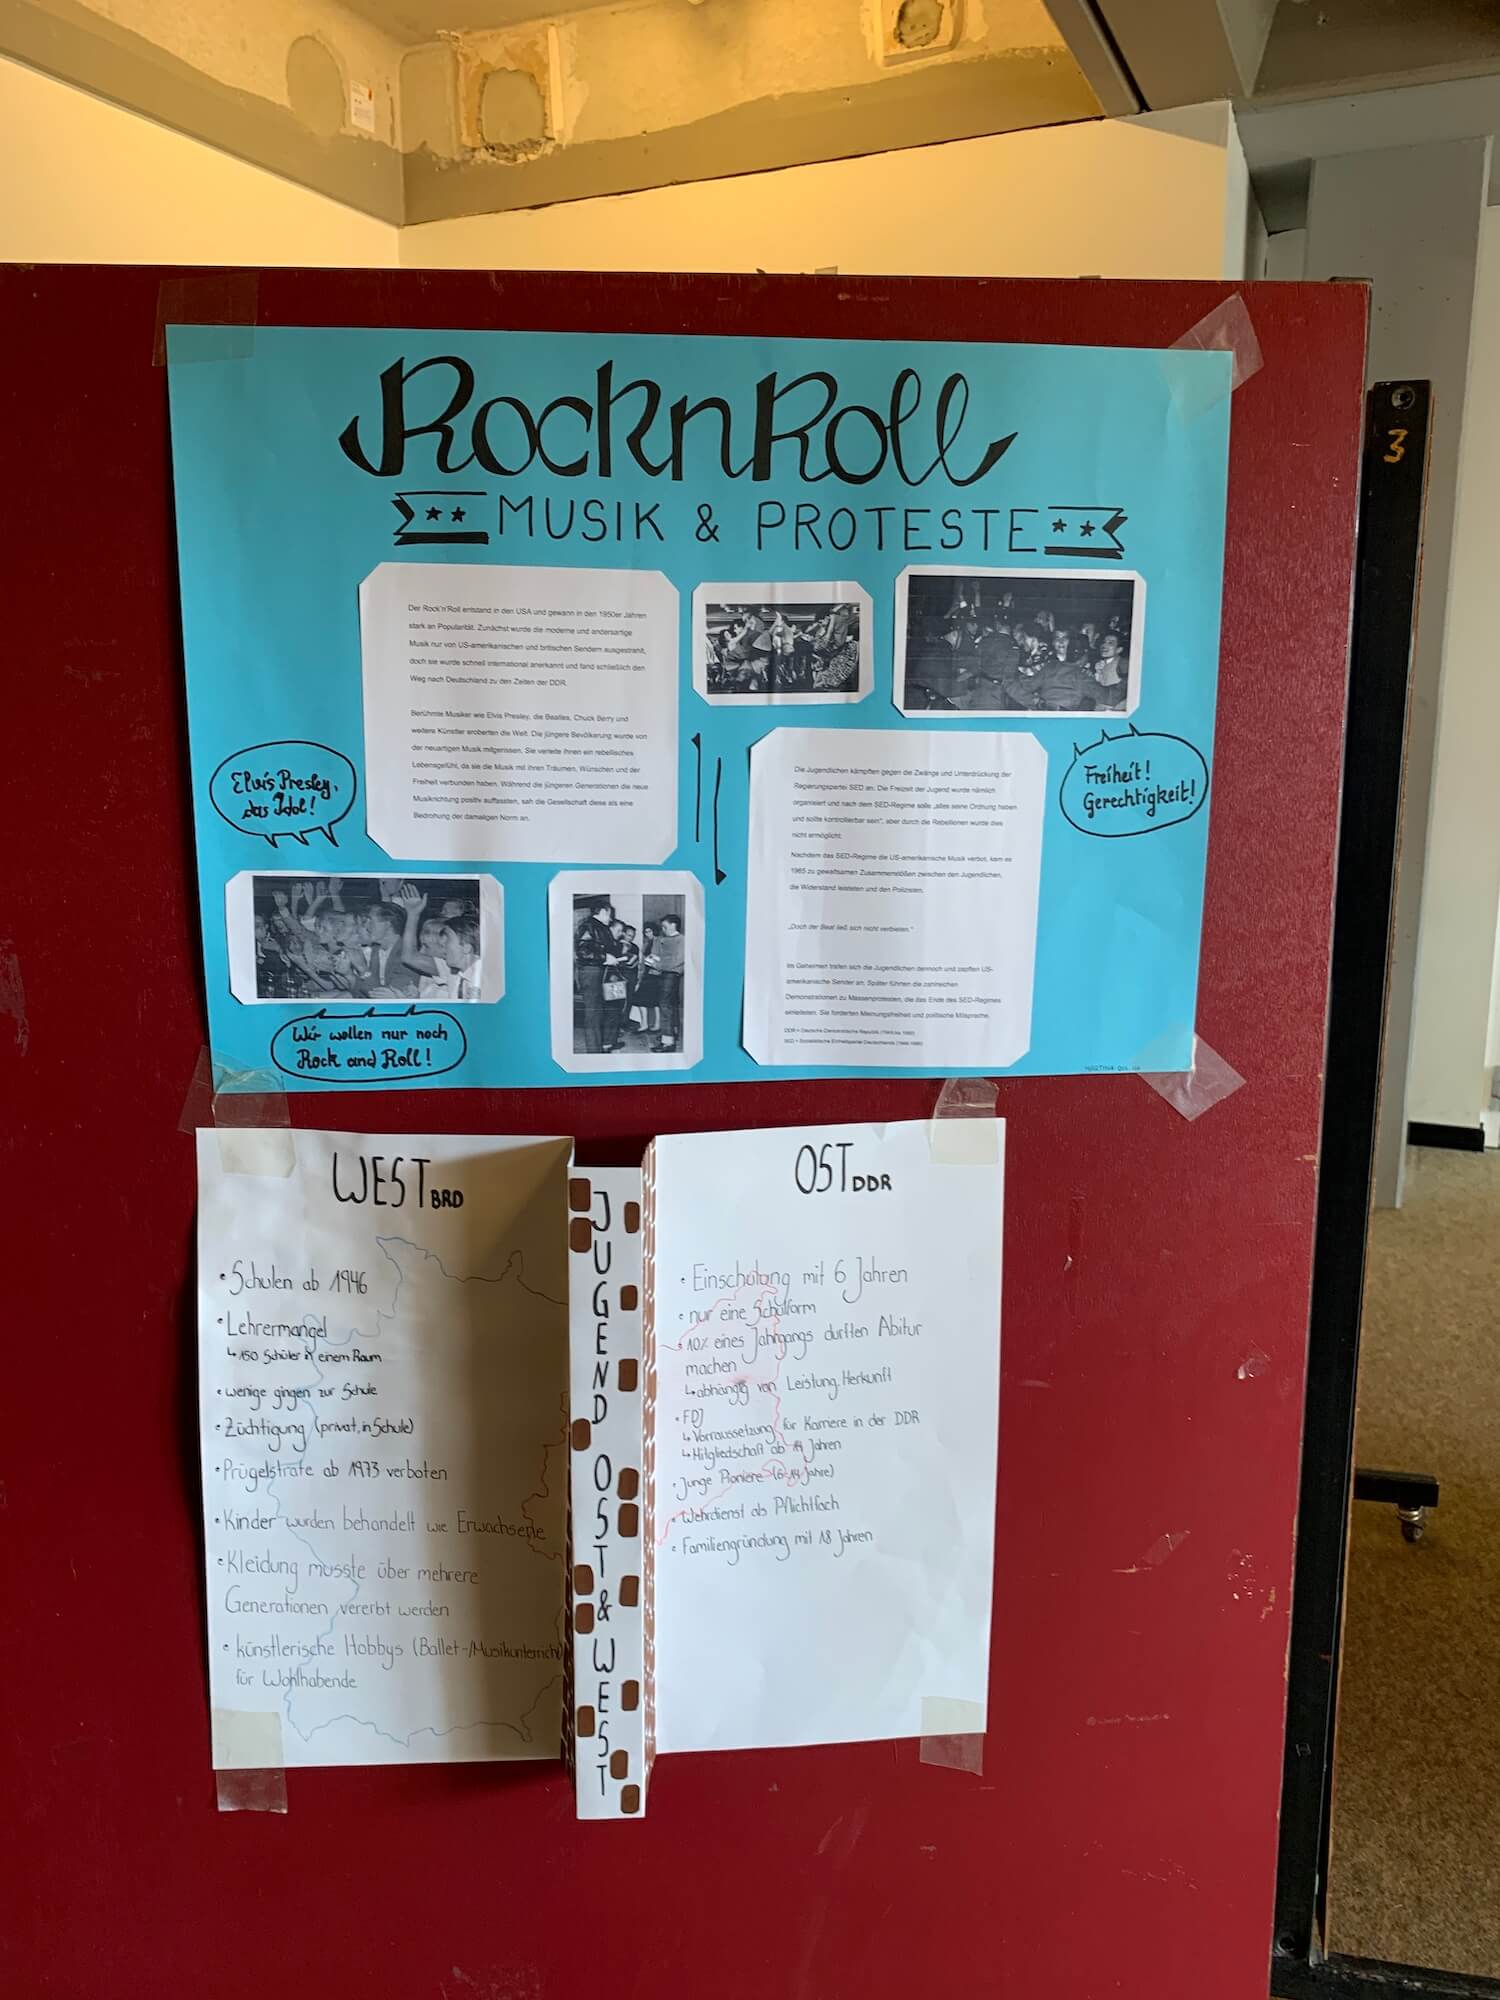 RocknRoll
MUSIK & PROTESTE
Der Rock'n'Roll entstand in den USA und gewann in den 1950er Jahren
stark an Popularität. Zunächst wurde die moderne und andersartige
Musik nur von US-amerikanischen und britischen Sendern ausgestrahlt,
doch sie wurde schnell international anerkannt und fand schließlich den
Weg nach Deutschland zu den Zeiten der DDR.
Berühmte Musiker wie Elvis Presley, die Beatles, Chuck Berry und
weitere Künstler eroberten die Welt. Die jüngere Bevölkerung wurde von
der neuartigen Musik mitgerissen. Sie verleite ihnen ein rebellisches
Lebensgefühl, da sie die Musik mit ihren Träumen, Wünschen und der
Freiheit verbunden haben. Während die jüngeren Generationen die neue
Musikrichtung positiv auffassten, sah die Gesellschaft diese als eine
Bedrohung der damaligen Norm an.
Elvis Presley,
das Idol!
Freiheit!
Gerechtigkeit!
Die Jugendlichen kämpften gegen die Zwänge und Unterdrückung der
Regierungspartei SED an. Die Freizeit der Jugend wurde nämlich
organisiert und nach dem SED-Regime solle „alles seine Ordnung haben
und sollte kontrollierbar sein", aber durch die Rebellionen wurde dies
nicht ermöglicht.
Nachdem das SED-Regime die US-amerikanische Musik verbot, kam es
1965 zu gewaltsamen Zusammenstößen zwischen den Jugendlichen,
die Widerstand leisteten und den Polizisten.
„Doch der Beat ließ sich nicht verbieten."
Im Geheimen trafen sich die Jugendlichen dennoch und zapften US-
amerikanische Sender an. Später führten die zahlreichen
Demonstrationen zu Massenprotesten, die das Ende des SED-Regimes
einleiteten. Sie forderten Meinungsfreiheit und politische Mitsprache.
DDR = Deutsche Demokratische Republik (1949 bis 1990)
SED = Sozialistische Einheitspartei Deutschlands
Wir wollen nur noch
Rock and Roll!
WEST BRD
• Schulen ab 1946
• Lehrermangel
↳ 150 Schüler in einem Raum
• wenige gingen zur Schule
• Züchtigung (privat, in Schule)
• Prügelstrafe ab 1973 verboten
• Kinder wurden behandelt wie Erwachsene
• Kleidung musste über mehrere
Generationen vererbt werden
• künstlerische Hobbys (Ballet-/Musikunterricht)
für Wohlhabende
JUGEND OST & WEST
OST DDR
• Einschulung mit 6 Jahren
• nur eine Schulform
• 10% eines Jahrgangs durften Abitur
machen
↳ abhängig von Leistung, Herkunft
• FDJ
↳ Vorraussetzung für Karriere in der DDR
↳ Mitgliedschaft ab 14 Jahren
• Junge Pioniere (6-14 Jahre)
• Wehrdienst als Pflichtfach
• Familiengründung mit 18 Jahren
3